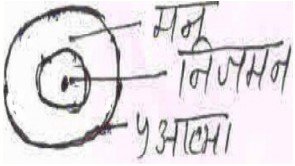 मन
निजमन
आत्मा